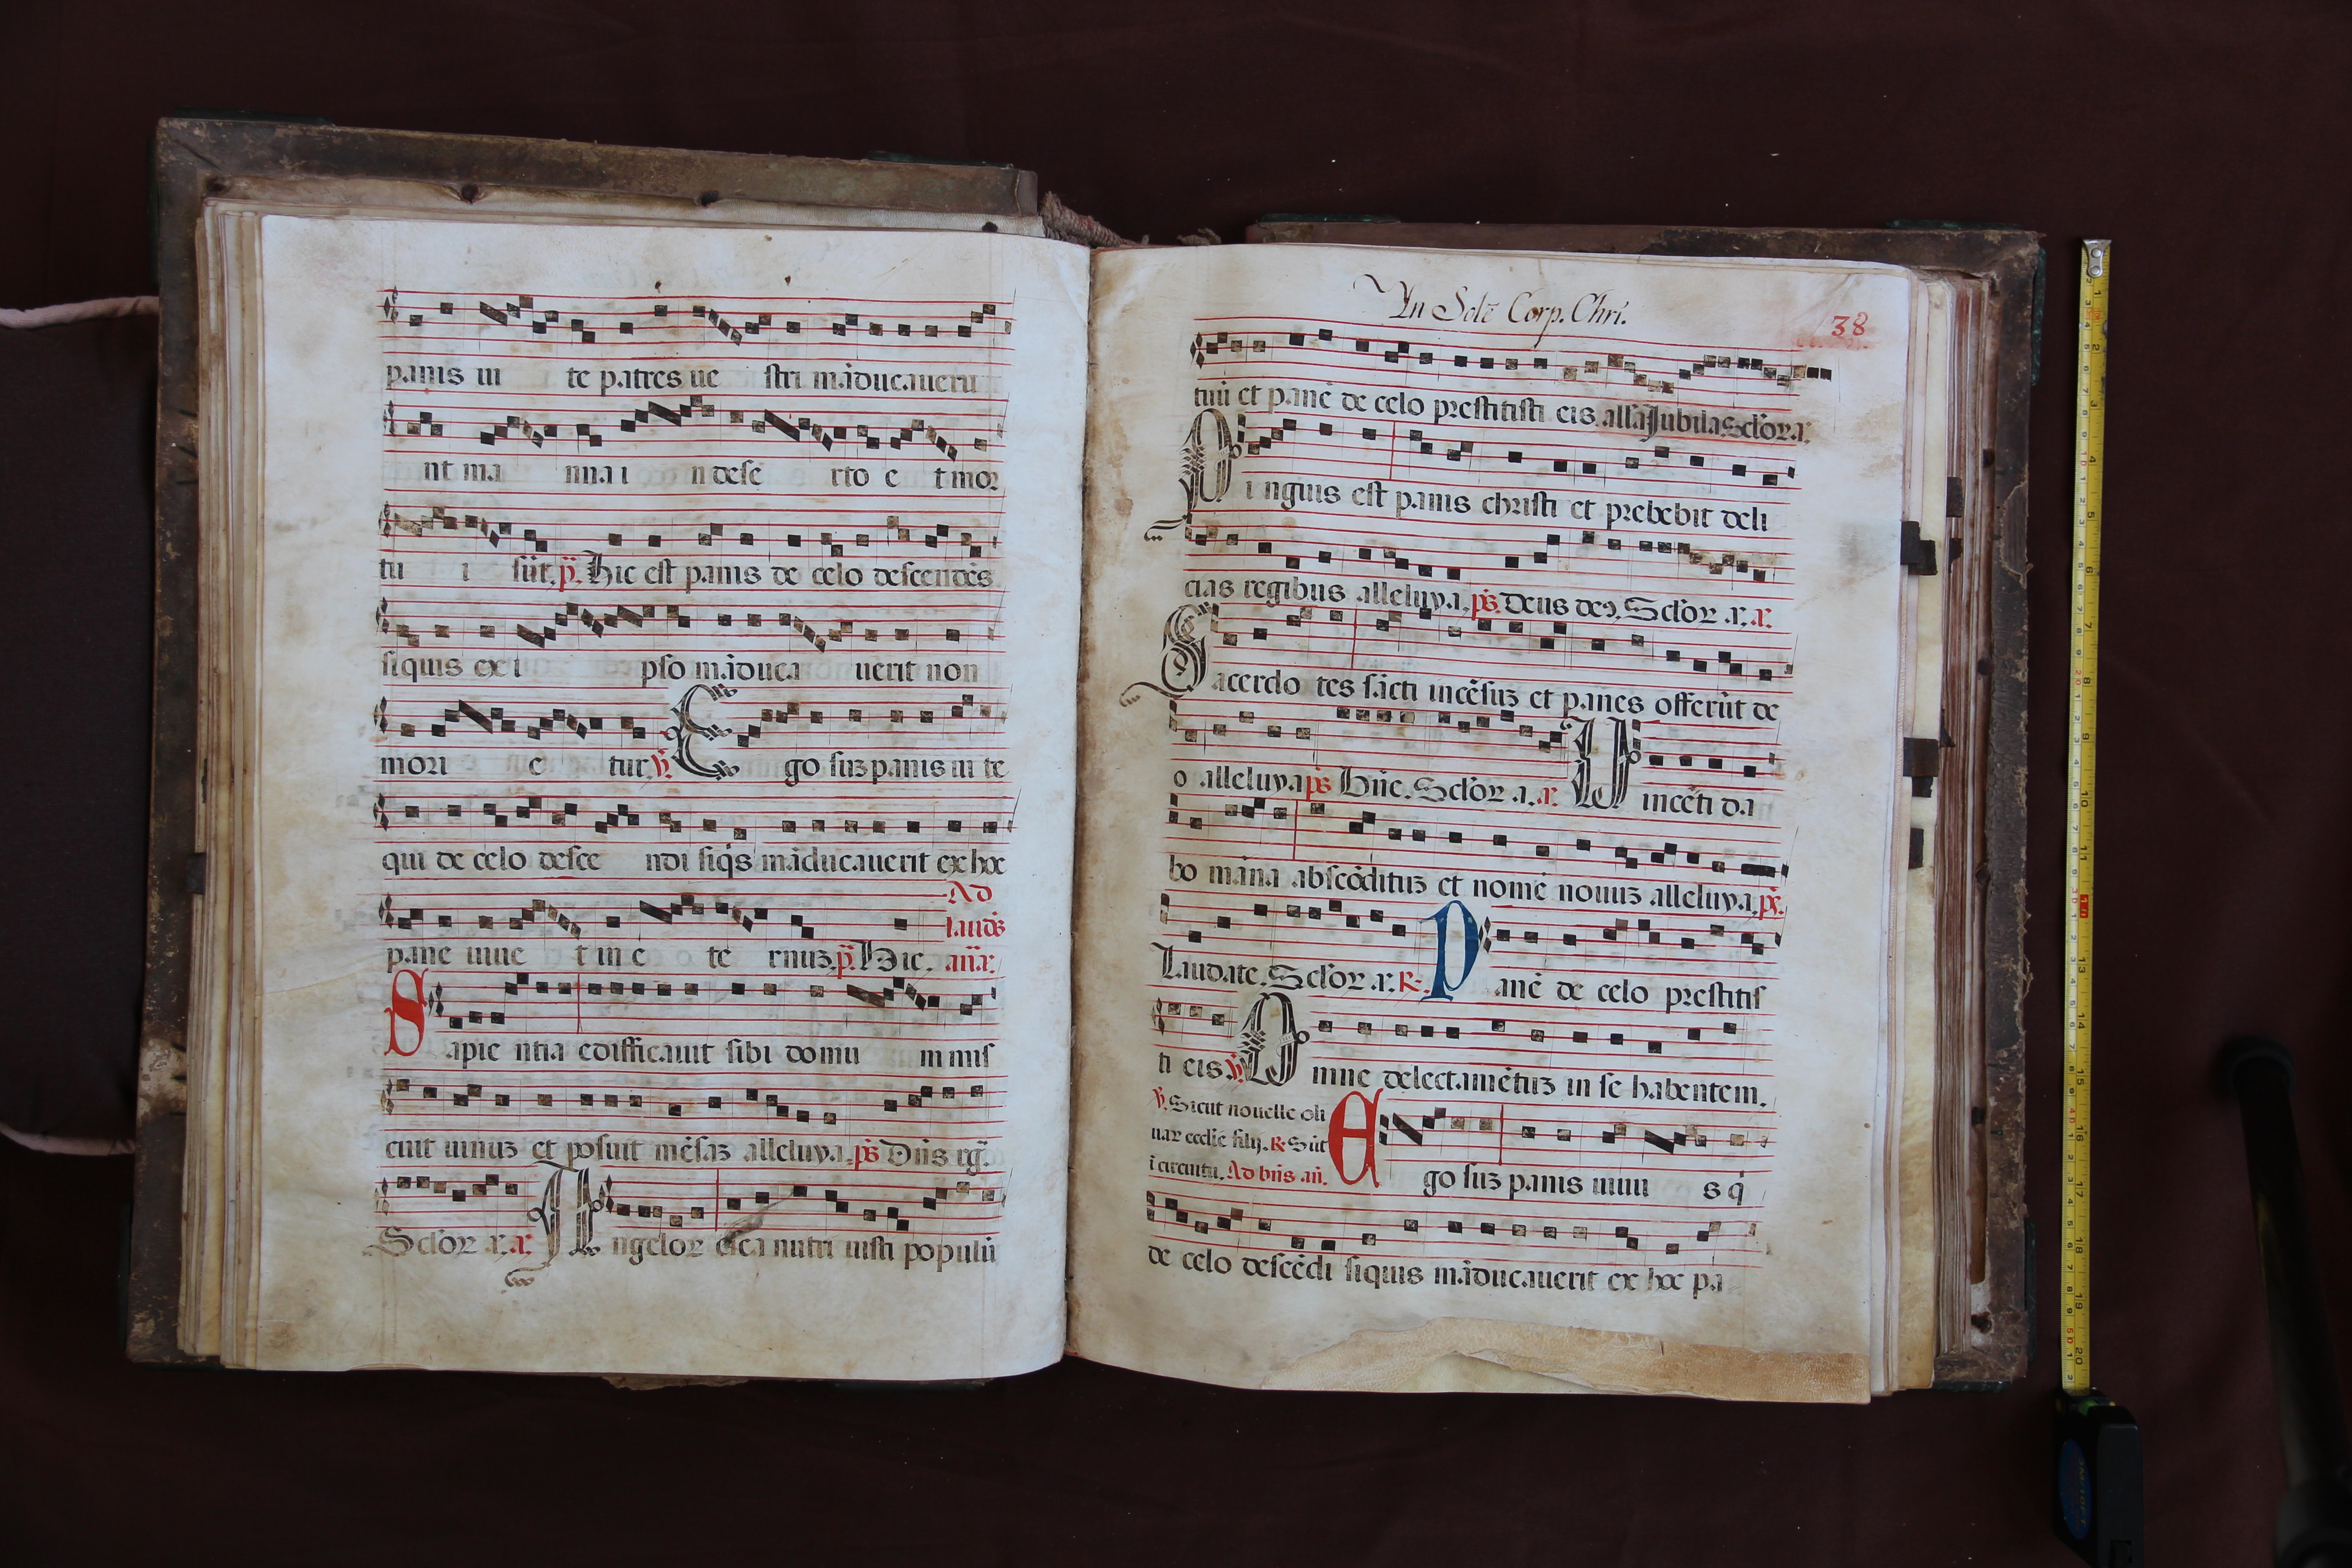 panis ui te patres ue stri māducaueru
nt ma nna i n dese rto e t mor
tu i sūt. p. Hic est panis de celo descendēs
siquis ex i pso māduca uerit non
mori e tur. ℣. Ego suꝫ panis ui te
qui de celo desce ndi siq̇s māducauerit ex hoc
Ad
laudꝭ
pane uiue t in e te rnuꝫ. p. Hic. aña.
Sapie ntia edifficauit sibi domu m mis
cuit uinuꝫ et posuit mēsaꝫ alleluya. ps̄ Dn̄s rḡ.
Sclōꝝ a. a. Angeloꝝ esca nutri uisti populū
In Solē Corp. Chri.
38
tuū et panē de celo prestitisti eis. alla Jubila. Sclōꝝ. a.
Pi nguis est panis christi et prebebit deli
cias regibus alleluya. ps̄. Deus deꝯ. Sclōꝝ a. a.
Sacerdo tes sācti incēsuꝫ et panes offerūt de
o alleluya ps̄ Bn̄c. Sclōꝝ a. a. Uincēti da
bo māna abscōdituꝫ et nomē nouuꝫ alleluya. ps̄.
Laudate. Sclōꝝ a. ℟. Panē de celo prestitis
ti eis ℣. Omne delectamētuꝫ in se habentem.
℣. Sicut nouelle oli
uaꝝ ecclīe filij. ℟. Sūt
ī circuitu. Ad bn̄s. an̄.
Ego suꝫ panis uiuu s q̇
de celo descēdi siquis māducauerit ex hoc pa